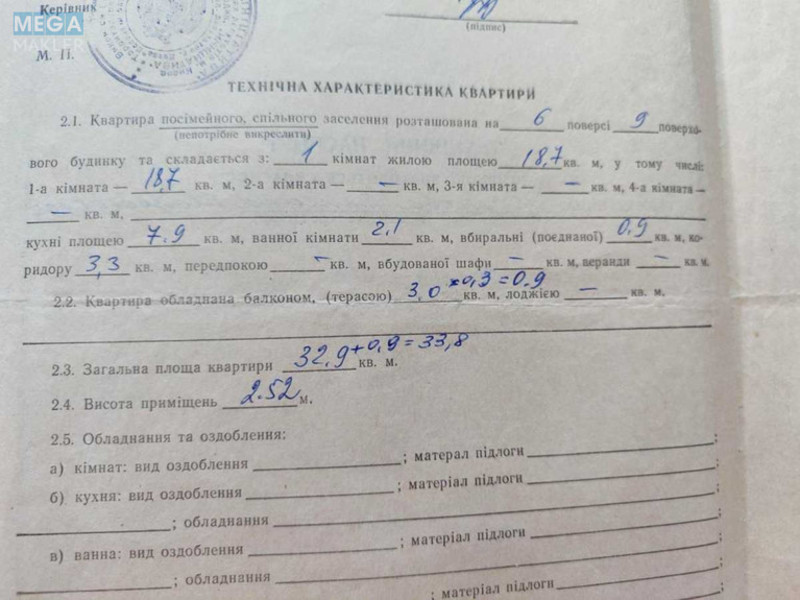 Керівник
MEGA
МАКЛЕР
(підпис)
М. П.
ТЕХНІЧНА ХАРАКТЕРИСТИКА КВАРТИРИ
2.1. Квартира посімейного, спільного заселення розташована на 6 поверсі 9 поверхо-
(непотрібне викреслити)
вого будинку та складається з: 1 кімнат жилою площею 18,7 кв. м, у тому числі:
1-а кімната — 18,7 кв. м, 2-а кімната — — кв. м, 3-я кімната — — кв. м, 4-а кімната —
— кв. м,
кухні площею 7.9 кв. м, ванної кімнати 2.1 кв. м, вбиральні (поєднаної) 0.9 кв. м, ко-
ридору 3,3 кв. м, передпокою — кв. м, вбудованої шафи — кв. м, веранди — кв. м.
2.2. Квартира обладнана балконом, (терасою) 3,0 × 0,3 = 0.9 кв. м, лоджією — кв. м,
2.3. Загальна площа квартири 32.9 + 0,9 = 33,8 кв. м.
2.4. Висота приміщень 2.52 м.
2.5. Обладнання та оздоблення:
а) кімнат: вид оздоблення ; матерал підлоги ;
б) кухня: вид оздоблення ; матеріал підлоги
; обладнання ;
в) ванна: вид оздоблення ; матеріал підлоги
; обладнання ;
; матеріал підлоги